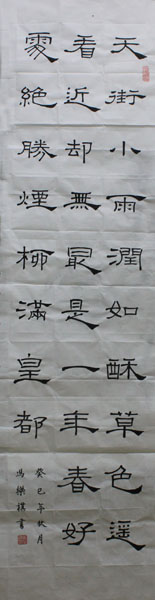 天街小雨潤如酥草色遥
看近却無最是一年春好
處絶勝煙柳滿皇都
癸巳年秋月
馮樂書